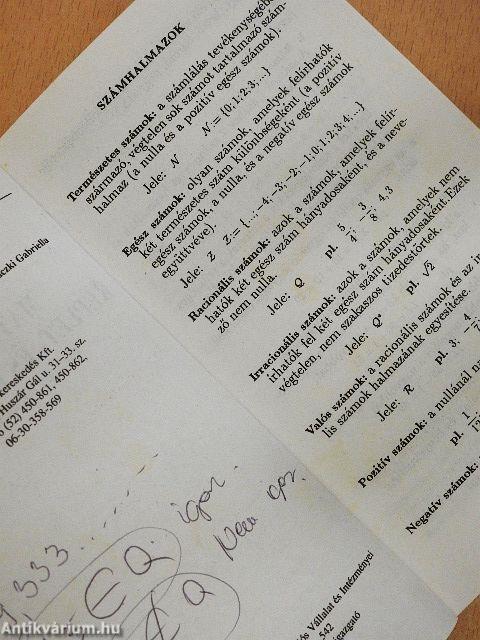 SZÁMHALMAZOK
Természetes számok: a számlálás
származó, végtelen sok számot tartalmazó szám-
halmaz (a nulla és a pozitív egész számok).
Jele: N N:= {0;1;2;3;...}
Egész számok: olyan számok, amelyek felírhatók
két természetes szám különbségeként (a pozitív
egész számok, a nulla, és a negatív egész számok
együttvéve).
Jele: Z Z:= {...;−4;−3;−2;−1;0;1;2;3;4;...}
Racionális számok: azok a számok, amelyek felír-
hatók két egész szám hányadosaként, és a neve-
ző nem nulla.
Jele: Q pl. 5/4; −3/8; 4,3
Irracionális számok: azok a számok, amelyek nem
írhatók fel két egész szám hányadosaként. Ezek
végtelen, nem szakaszos tizedestörtek.
Jele: Q* pl. √2
Valós számok: a racionális számok és az
lis számok halmazának egyesítése.
Jele: R pl. 3;
Pozitív számok: a nullánál
pl.
Negatív számok:
Gabriella
Kereskedés Kft.
Huszár Gál u. 31–33. sz.
(52) 450-861, 450-862.
06-30-358-569
333......
∈ Q. igaz.
Q Nem igaz.
Vállalat és Intézményei
542
Antikvárium.hu